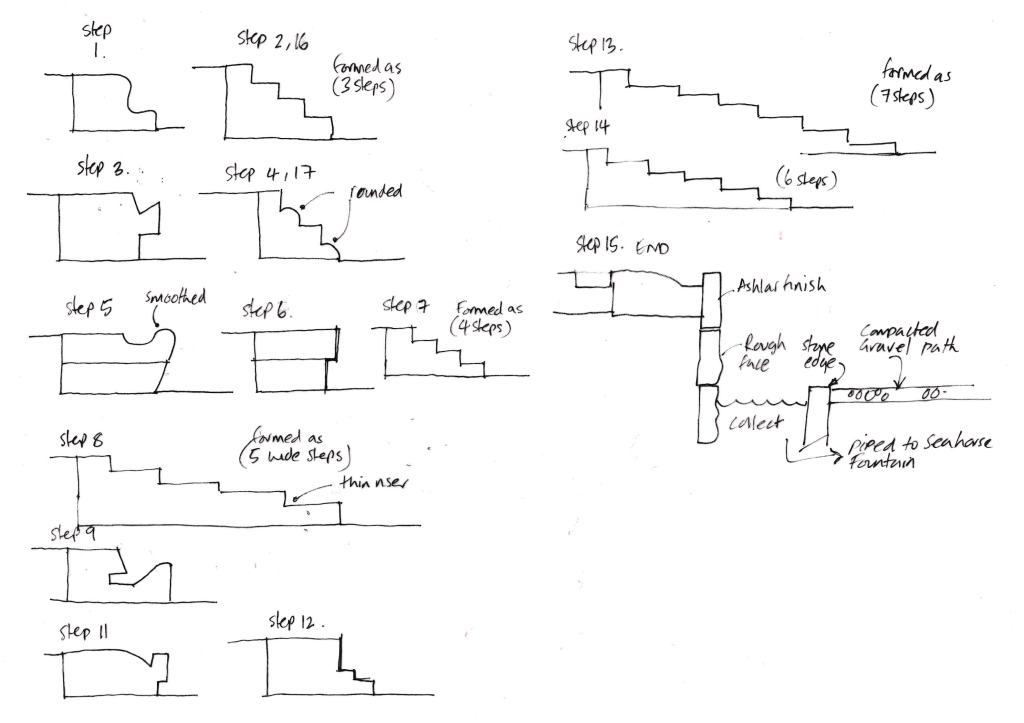 step
1.
step 2,16
formed as
(3 steps)
step 3.
step 4,17
rounded
step 5
smoothed
step 6.
step 7
Formed as
(4 steps)
step 8
formed as
(5 wide steps)
thin riser
step 9
step 11
step 12.
step 13.
formed as
(7 steps)
step 14
(6 steps)
step 15. END
Ashlar finish
Rough
face
stone
edge
Compacted
Gravel path
collect
piped to Seahorse
Fountain